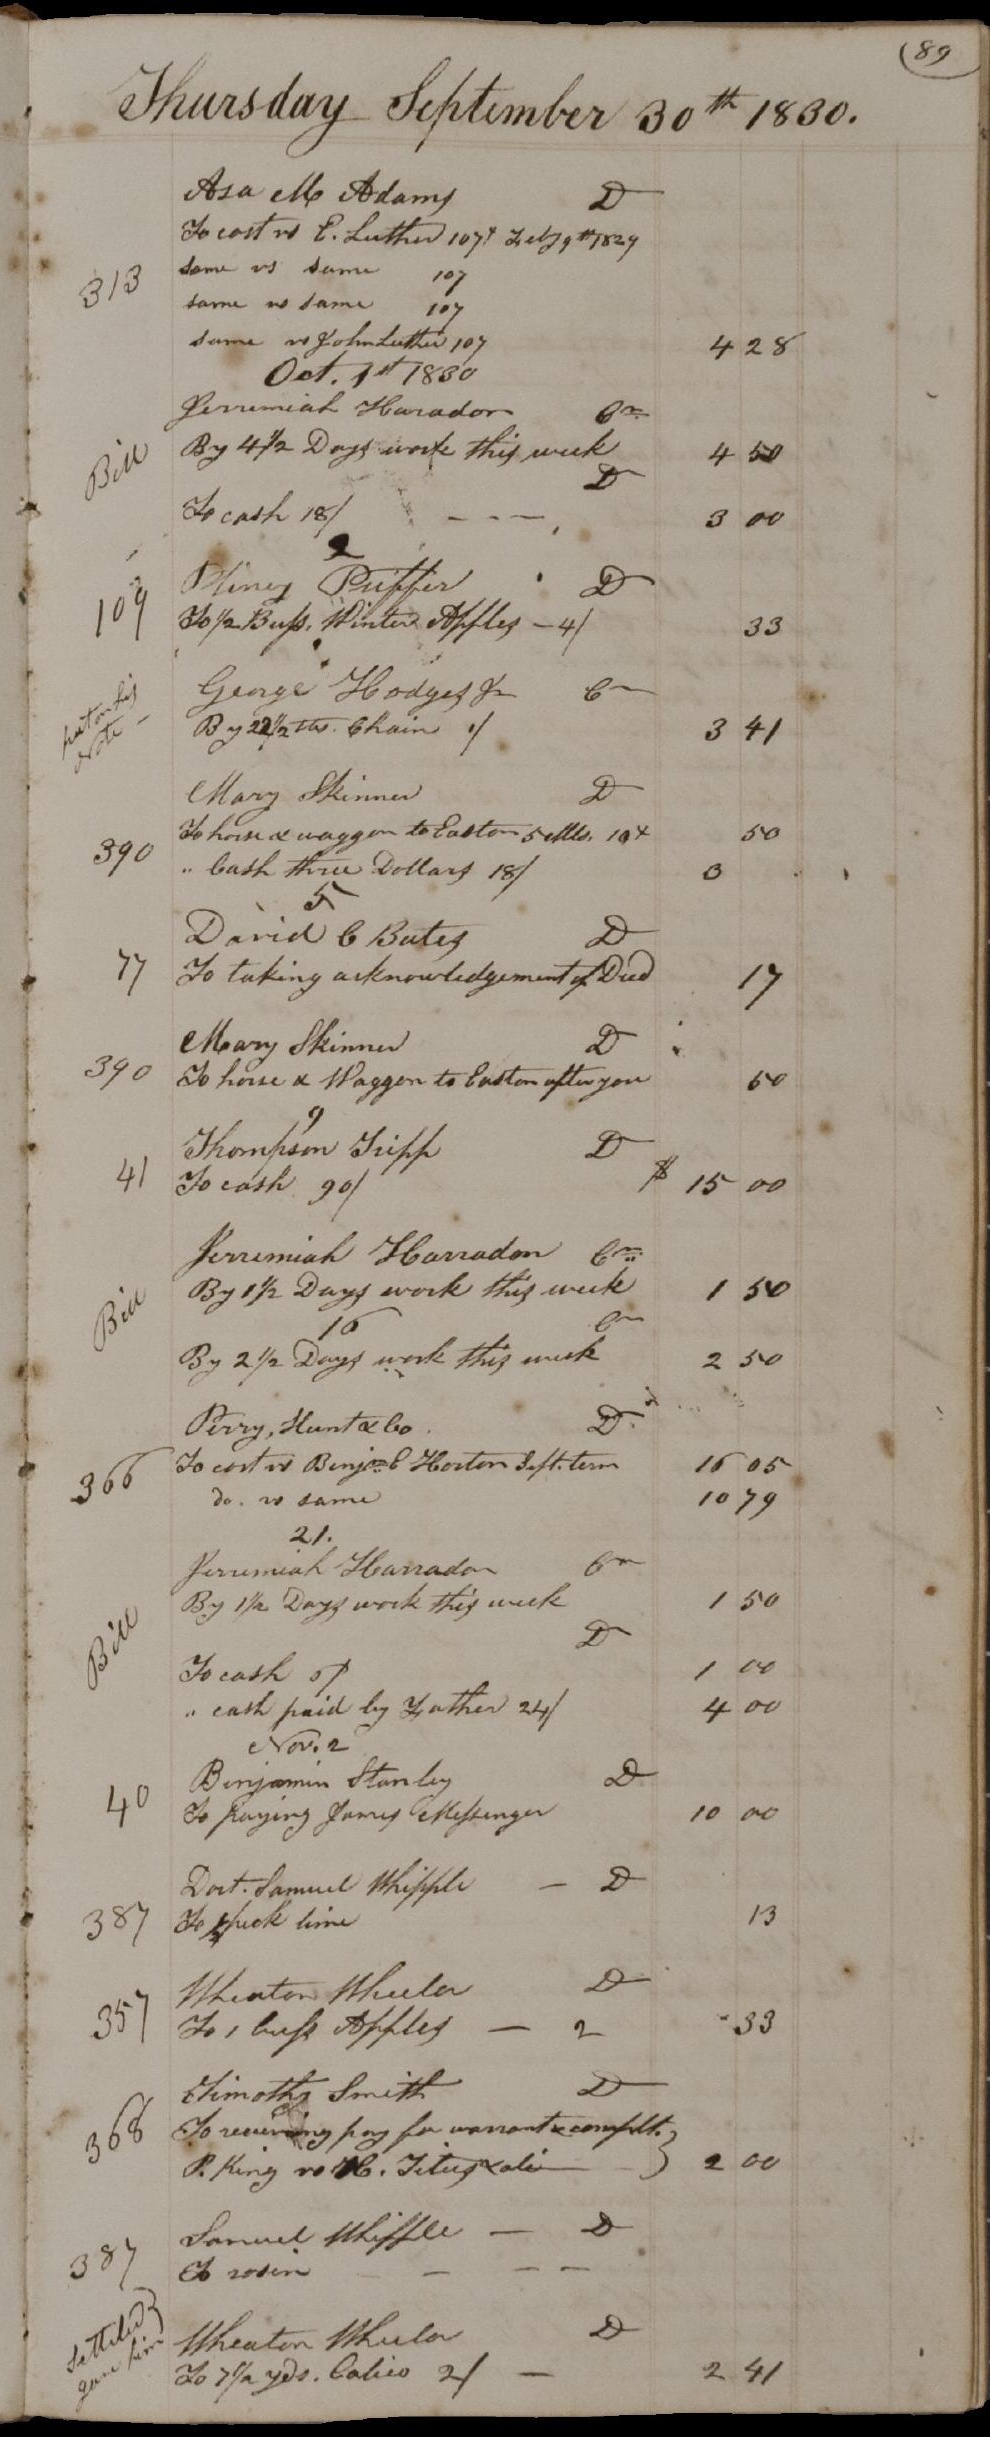 89
Thursday September 30th 1830.
Asa M Adams D
To cost vs E. Luther 107 + Feby 9th 1829
313 same vs same 107
same vs same 107
same vs John Luther 107 4 28
Oct. 1st 1830
Jerremiah Haradon Cr
Bill By 4 1/2 Days work this week 4 50
D
To cash 18/ - - - 3 00
2
Pliney Puffer D
109 To 1/2 Bush. Winter Apples - 4/ 33
George Hodges Jr Cr
put on his Note By 22 1/2 lbs. Chain 1/ 3 41
Mary Skinner D
To horse & waggon to Easton 5 Mls. 10 + 50
390 " Cash three Dollars 18/ 3
5
David C Bates D
77 To taking acknowledgement of Deed 17
Mary Skinner D
390 To horse & Waggon to Easton after you 50
9
Thompson Tripp D
41 To cash 90/ $ 15 00
Jerremiah Harradon Cr
Bill By 1 1/2 Days work this week 1 50
16 Cr
By 2 1/2 Days work this week 2 50
Perry, Hunt & Co. D
366 To cost vs Benjn C Horton Sept. term 16 05
do. vs same 10 79
21.
Jerremiah Harradon Cr
By 1 1/2 Days work this week 1 50
Bill D
To cash 6/ 1 00
" cash paid by Father 24/ 4 00
Nov. 2
Benjamin Stanley D
40 To paying James Messenger 10 00
Doct. Samuel Whipple - D
387 To peck lime 13
Wheaton Wheeler D
357 To 1 bush Apples - 2 33
Timothy Smith D
368 To receiving pay for warrant & complt.
P. King vs H. Titus & ali 2 00
Samuel Whipple - D
387 To rosin - - -
settled gave him
Wheaton Wheeler D
To 7 1/2 yds. Calico 2/ - 2 41